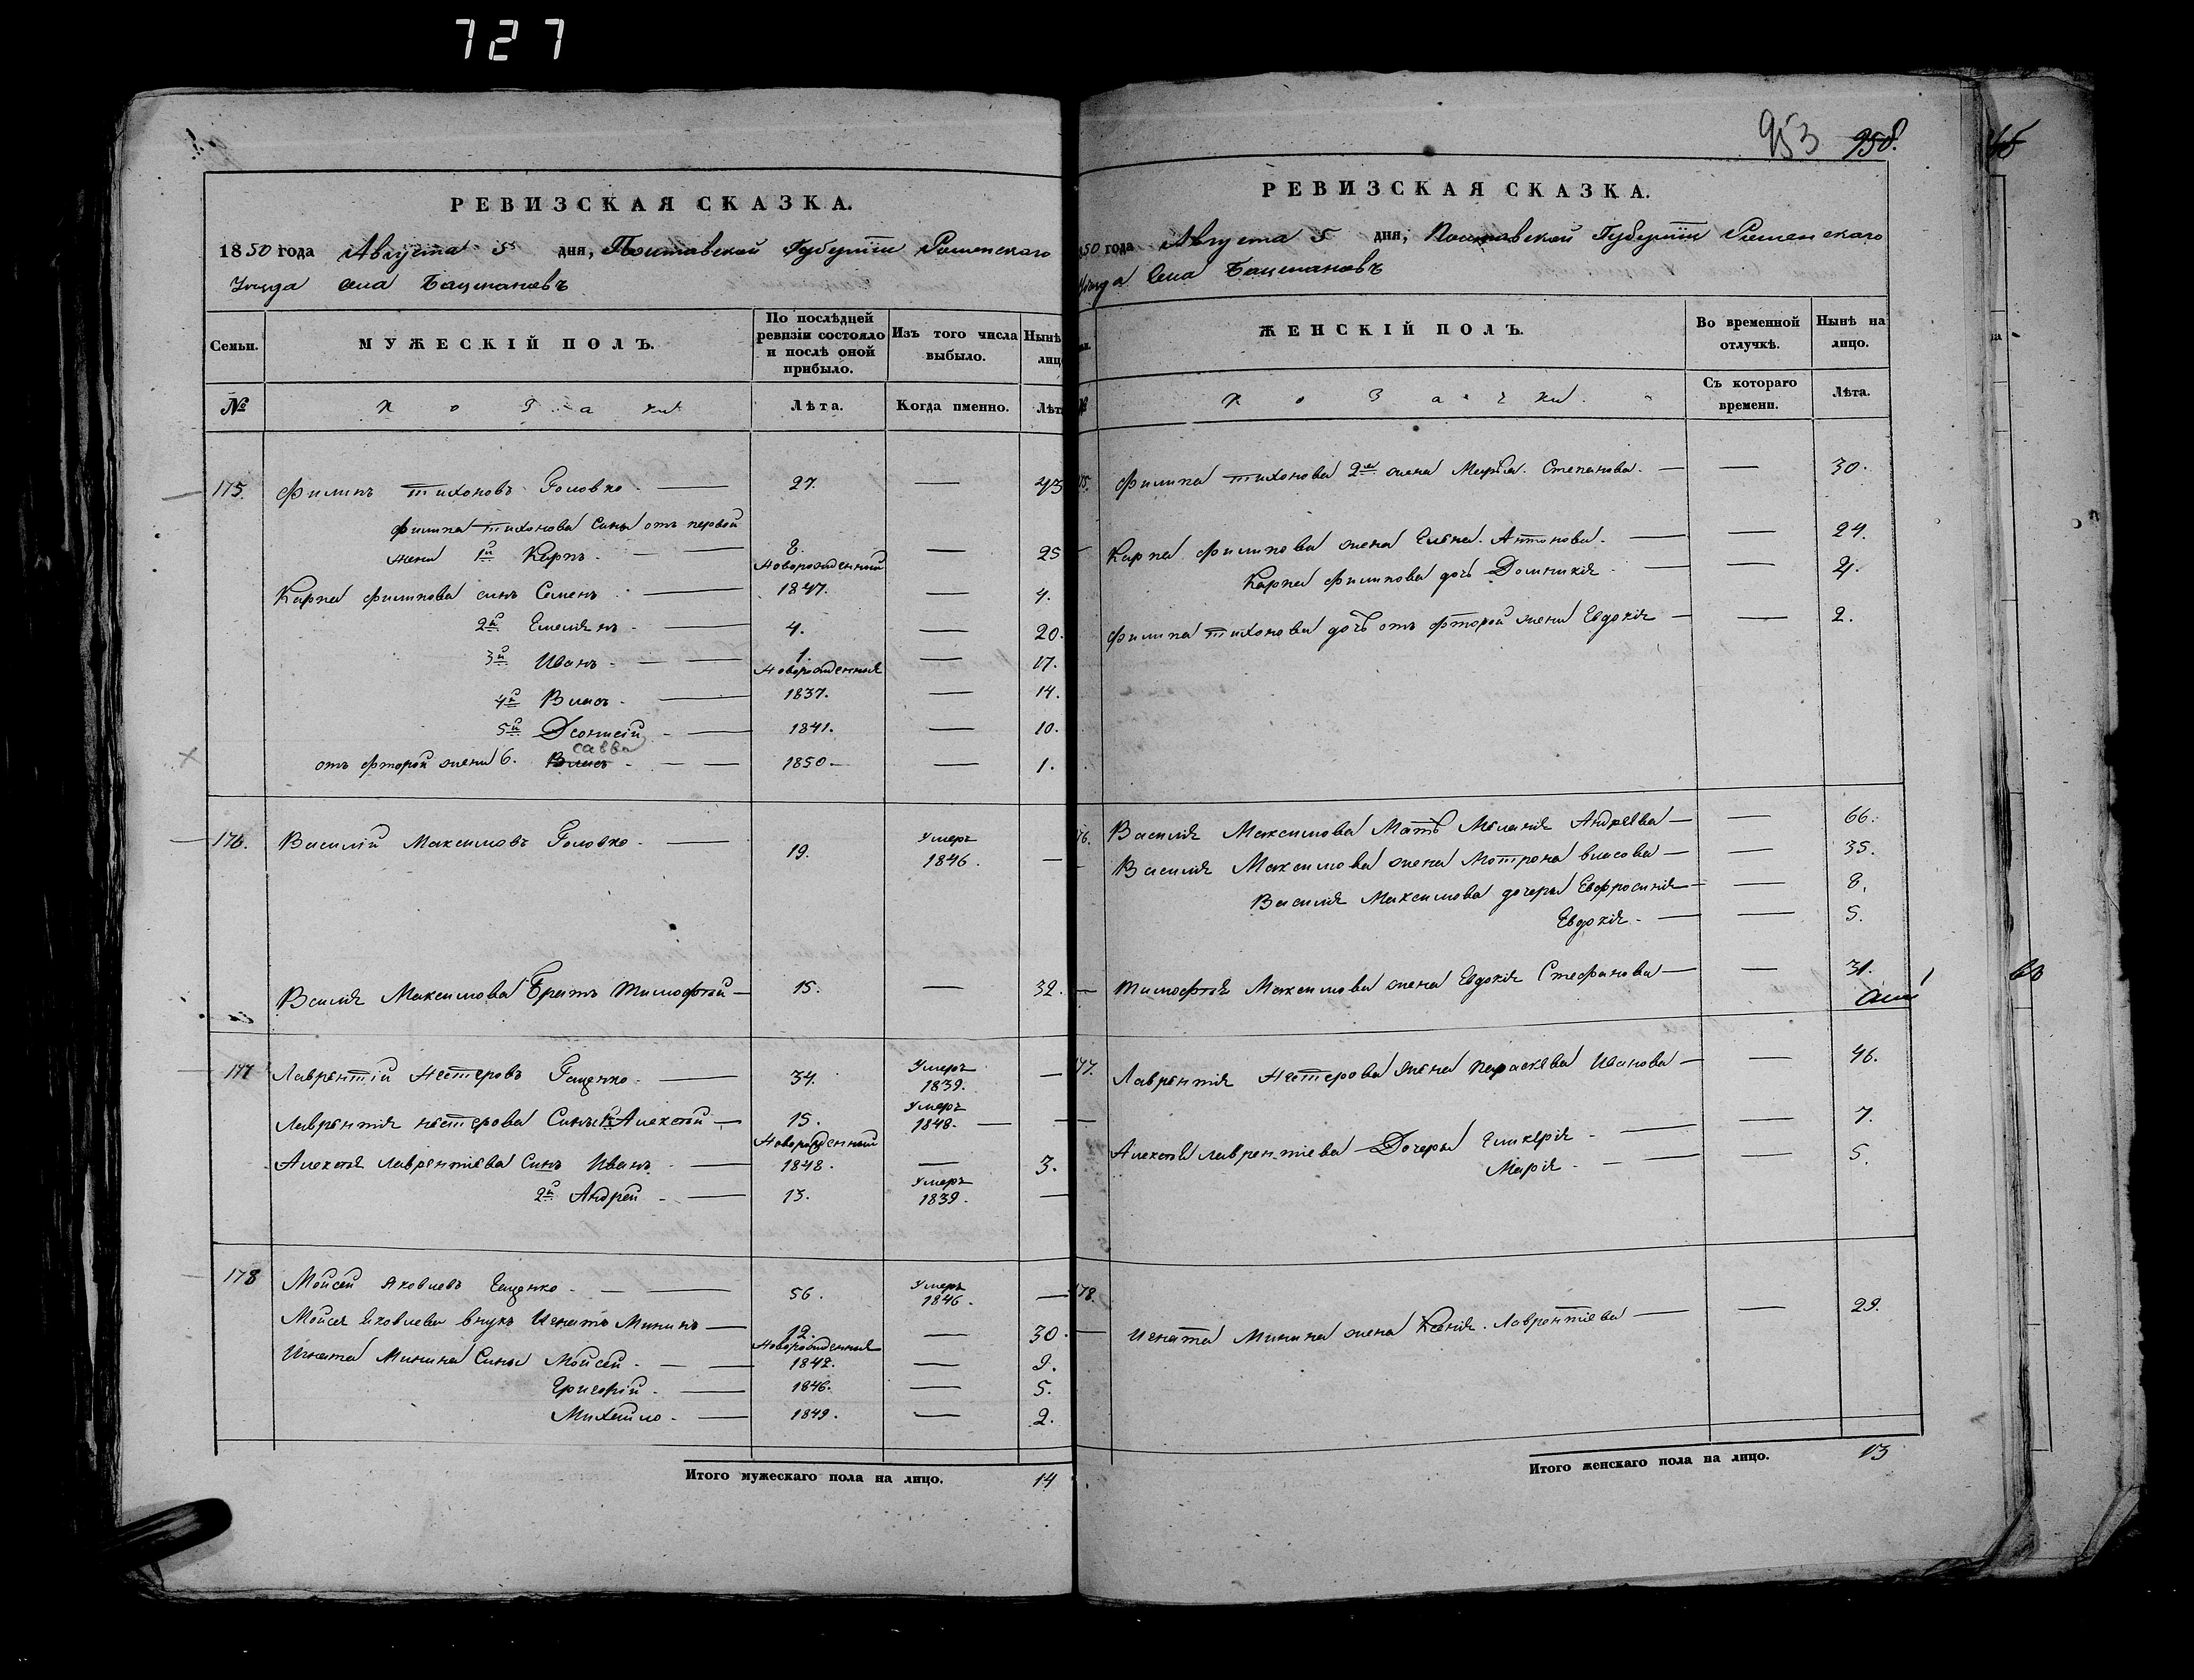 727
РЕВИЗСКАЯ СКАЗКА.
1850 года Августа 5 дня, Полтавской Губерніи Роменскаго
Уезда Села Бацмановъ
Семьи.
МУЖЕСКІЙ ПОЛЪ.
По послѣдней ревизіи состояло и послѣ оной прибыло.
Изъ того числа выбыло.
Нынѣ лиц
№
Козаки
Лѣта.
Когда именно.
Лѣт
175. Филипъ Тихоновъ Головко. 27. — 43
Филипа Тихонова Сины отъ первой
жени 1й Карпъ. 8. — 25
Новорожденный
Карпа Филипова синъ Семенъ 1847. — 4.
2й Емелянъ 4. — 20.
3й Иванъ 1. — 17.
Новорожденные
4й Власъ 1837. — 14.
5й Дсонисій 1841. — 10.
савва
отъ фторой жени 6. Власъ 1850 — 1.
176. Василій Максимовъ Головко. 19. Умеръ 1846. —
Всилія Максимова Братъ Тимофтей — 15. — 32.
177 Лаврентій Нестеровъ Гащенко. 34. Умеръ 1839. —
Лаврентія нестерова Сины 1й Алексей — 15. Умеръ 1848. —
Новорожденный
Алексея Лаврентіева Синъ Иванъ 1848. — 3.
2й Андрей 13. Умеръ 1839. —
178 Мойсей Яковлевъ Гащенко 56. Умеръ 1846. —
Мойсея Яковлева внукъ Игнатъ Мининъ — 12. — 30.
Новорожденные
Игната Минина Сины Мойсей 1842. — 9.
Григорій 1846. — 5.
Михайло 1849. — 2.
Итого мужескаго пола на лицо. 14
953 950.
РЕВИЗСКАЯ СКАЗКА.
850 года Августа 5 дня, Полтавской Губерніи Роменскаго
Уезда Села Бацмановъ
ЖЕНСКІЙ ПОЛЪ.
Во временной отлучкѣ.
Нынѣ на лицо.
Козачки.
Съ котораго времени.
Лѣта.
75. Филипа Тихонова 2я жена Марѳа Степанова. — 30.
Карпа Филипова жена Елена Антонова. — 24.
Карпа Филипова дочь Домникія — 4.
Филипа Тихонова дочь отъ фторой жени Евдокія — 2.
76. Василія Максимова Мать Меланія Андреева — 66.
Василія Максимова жена Мотрона власова — 35.
Василія Максимова дочери Евфросинія — 8.
Евдокія — 5.
Тимофтея Максимова жена Евдокія Стефанова — 31.
77. Лаврентія Нестерова жена Параскева Иванова — 46.
Алексея Лаврентіева Дочери Гликерія — 7.
Марія — 5.
178. Игната Минина жена Ксенія Лаврентіева — 29.
Итого женскаго пола на лицо. 13